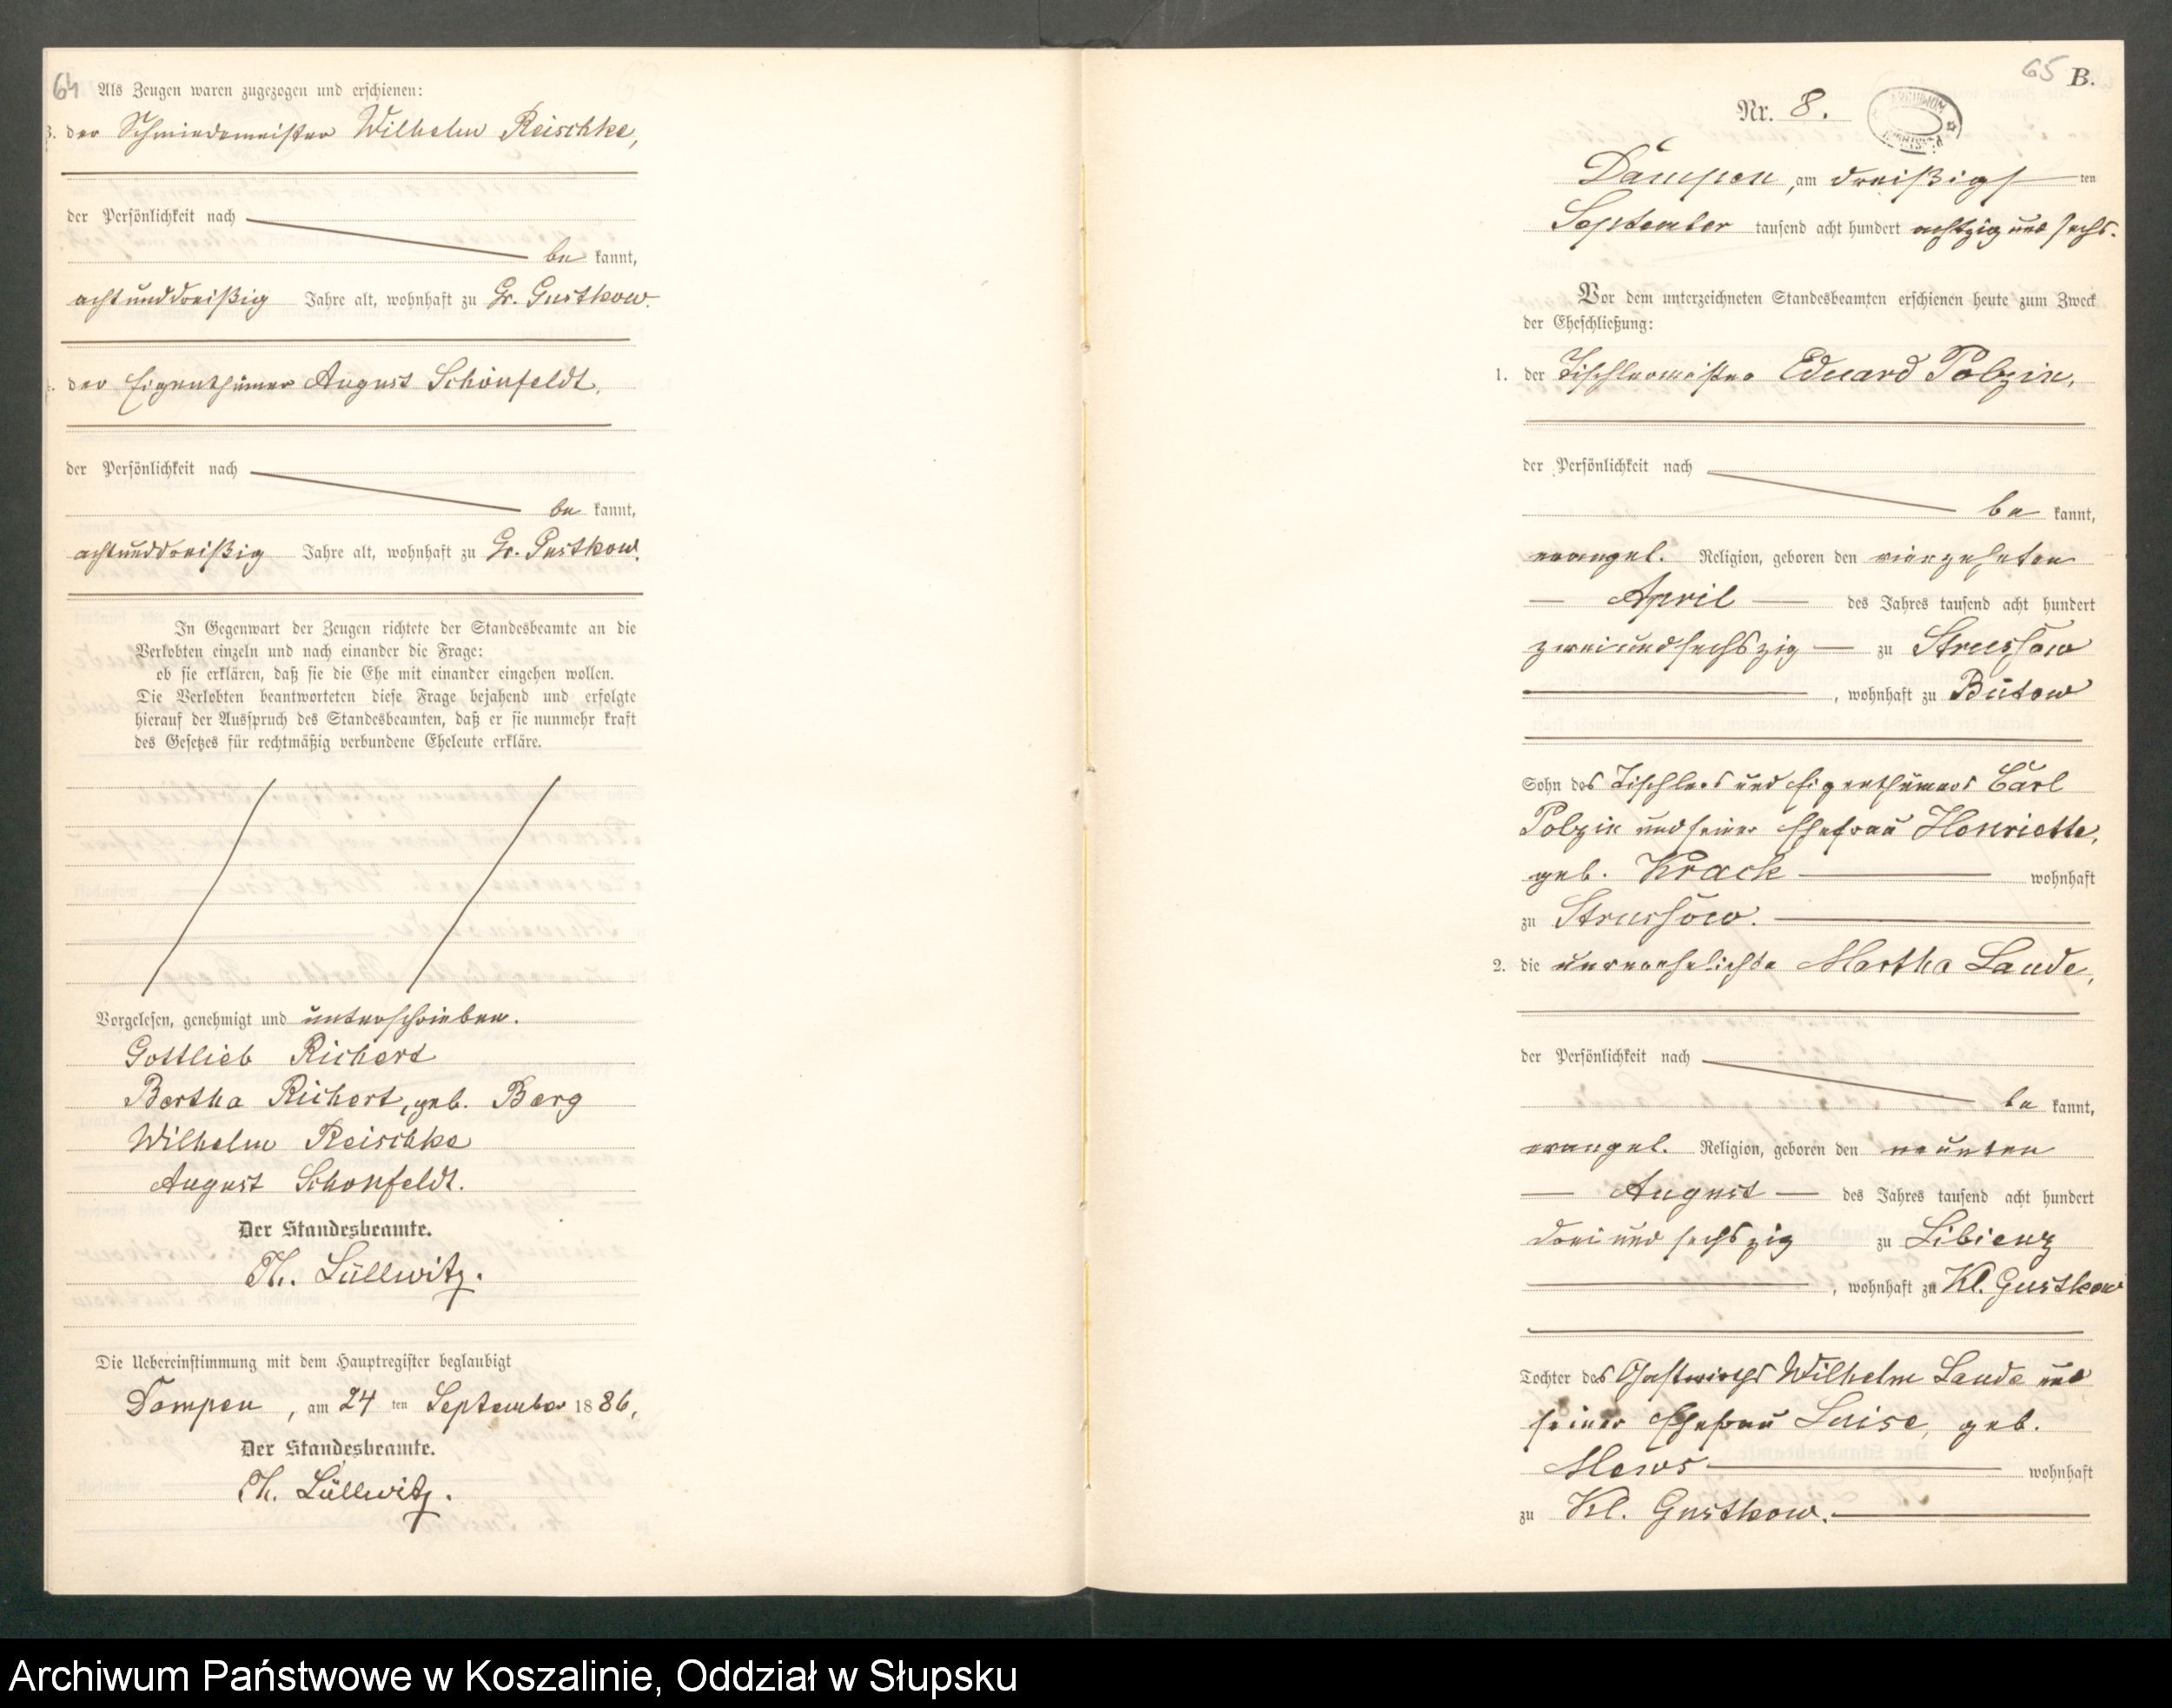 64 Als Zeugen waren zugezogen und erschienen:
3. der Schmiedemeister Wilhelm Reischke,
der Persönlichkeit nach
be kannt,
achtunddreißig Jahre alt, wohnhaft zu Gr. Gustkow.
der Eigenthümer August Schönfeldt,
der Persönlichkeit nach
be kannt,
achtunddreißig Jahre alt, wohnhaft zu Gr. Gustkow.
In Gegenwart der Zeugen richtete der Standesbeamte an die
Verlobten einzeln und nach einander die Frage:
ob sie erklären, daß sie die Ehe mit einander eingehen wollen.
Die Verlobten beantworteten diese Frage bejahend und erfolgte
hierauf der Ausspruch des Standesbeamten, daß er sie nunmehr kraft
des Gesetzes für rechtmäßig verbundene Eheleute erkläre.
Vorgelesen, genehmigt und unterschrieben.
Gottlieb Richert
Bertha Richert, geb. Berg
Wilhelm Reischke
August Schonfeldt.
Der Standesbeamte.
Th. Lüllwitz.
Die Uebereinstimmung mit dem Hauptregister beglaubigt
Dampen, am 24 ten September 1886,
Der Standesbeamte.
Th. Lüllwitz.
65 B.
Nr. 8.
ARCHIWUM
Dampen, am dreißigs ten
September tausend acht hundert achtzig und sechs.
Vor dem unterzeichneten Standesbeamten erschienen heute zum Zweck
der Eheschließung:
1. der Tischlermeister Eduard Polzin,
der Persönlichkeit nach
be kannt,
evangel. Religion, geboren den vierzehnten
April des Jahres tausend acht hundert
zweiundsechszig zu Strussow
, wohnhaft zu Bütow
Sohn des Tischlers und Eigenthümers Carl
Polzin und seiner Ehefrau Henriette,
geb. Krack wohnhaft
zu Strussow.
2. die unverehelichte Martha Laude,
der Persönlichkeit nach
be kannt,
evangel. Religion, geboren den neunten
August des Jahres tausend acht hundert
drei und sechszig zu Libienz
, wohnhaft zu Kl. Gustkow
Tochter des Gastwirths Wilhelm Laude und
seiner Ehefrau Luise, geb.
Mews wohnhaft
zu Kl. Gustkow.
Archiwum Państwowe w Koszalinie, Oddział w Słupsku